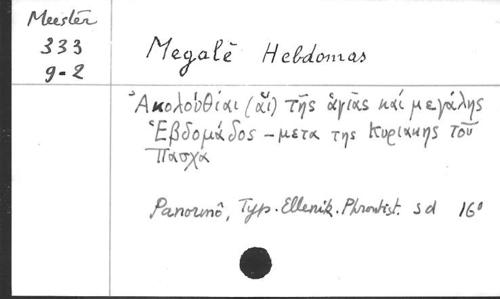 Meester
333
9-2
Megalê Hebdomas
Ἀκολούθίαι (αἵ) τῆς ἁγίας καί μεγάλης
Ἑβδομάδος - μετα της Κυριακης τοῦ
Πασχα
Panormô, Typ. Ellenik. Phrontist. sd 16°